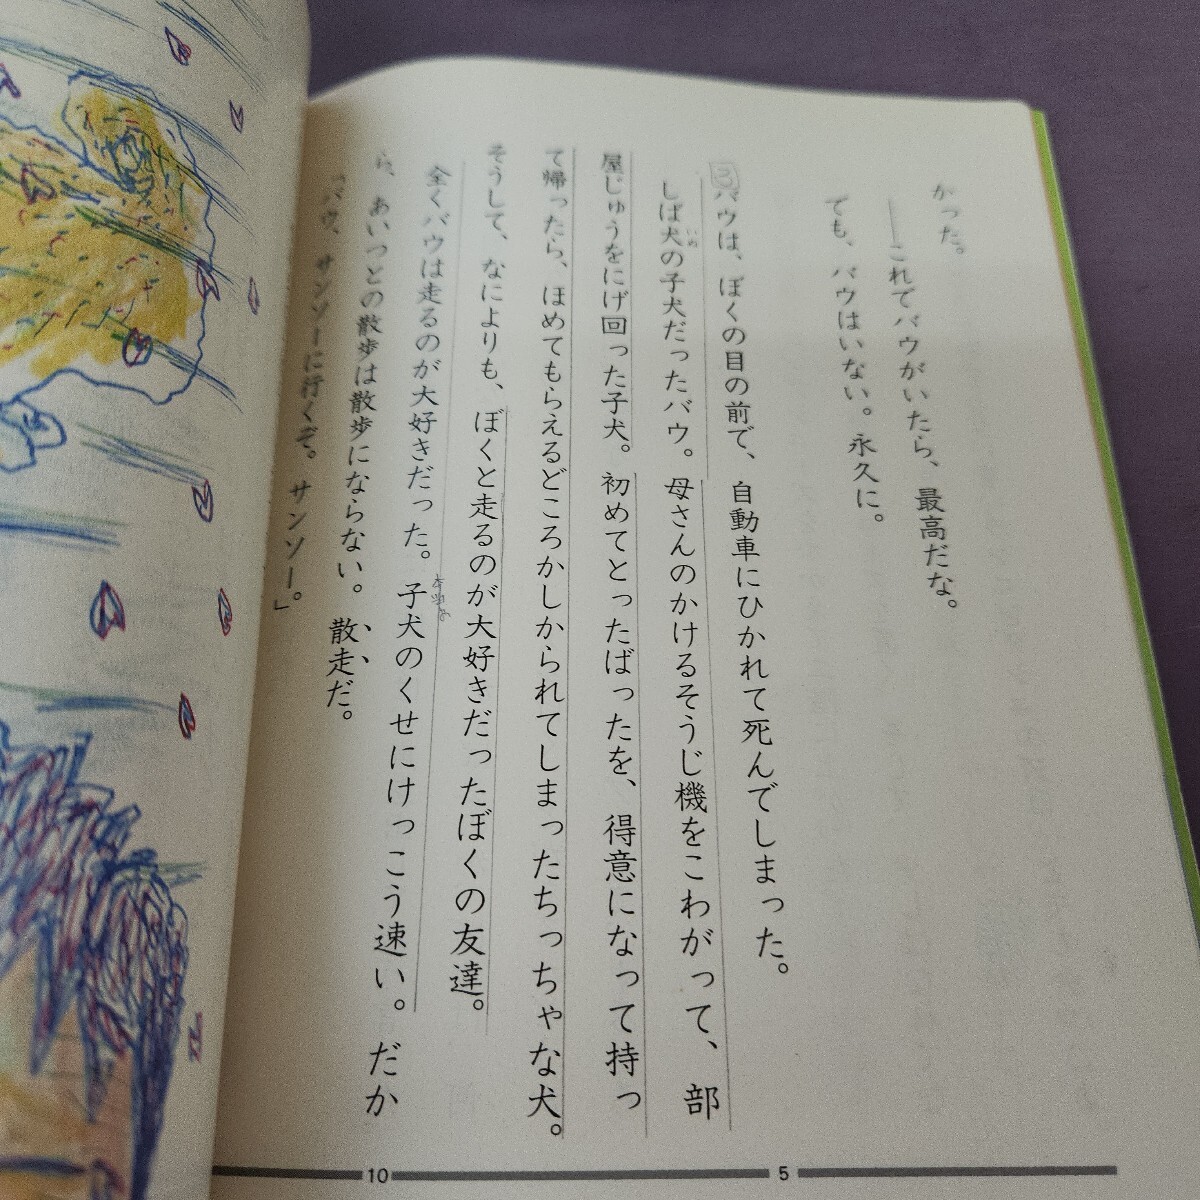 かった。
――これでバウがいたら、最高だな。
でも、バウはいない。永久に。
バウは、ぼくの目の前で、自動車にひかれて死んでしまった。
しば犬の子犬だったバウ。母さんのかけるそうじ機をこわがって、部
いぬ
屋じゅうをにげ回った子犬。初めてとったばったを、得意になって持っ
て帰ったら、ほめてもらえるどころかしかられてしまったちっちゃな犬。
そうして、なによりも、ぼくと走るのが大好きだったぼくの友達。
全くバウは走るのが大好きだった。子犬のくせにけっこう速い。だか
ら、あいつとの散歩は散歩にならない。散走だ。
「バウ、サンソーに行くぞ。サンソー。」
5
10